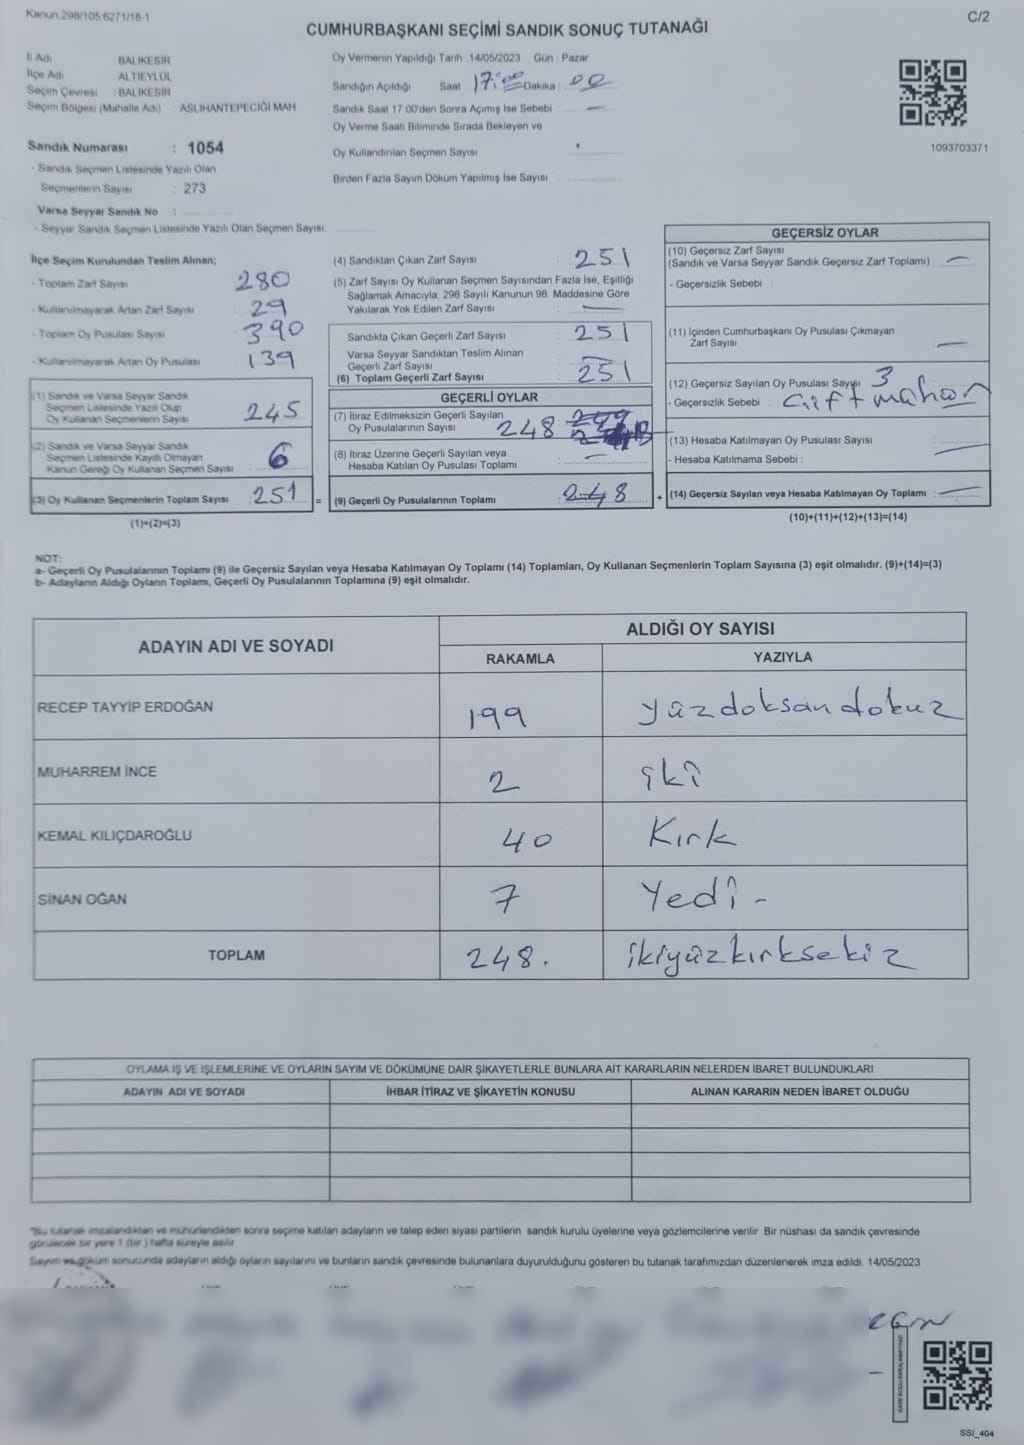 Kanun.298/105;6271/18-1
C/2
CUMHURBAŞKANI SEÇİMİ SANDIK SONUÇ TUTANAĞI
İl Adı : BALIKESİR
İlçe Adı : ALTIEYLÜL
Seçim Çevresi : BALIKESİR
Seçim Bölgesi (Mahalle Adı) : ASLIHANTEPECİĞİ MAH
Oy Vermenin Yapıldığı Tarih :14/05/2023 Gün : Pazar
Sandığın Açıldığı Saat 17:00 Dakika : 00
Sandık Saat 17:00'den Sonra Açımış İse Sebebi —
Oy Verme Saati Bitiminde Sırada Bekleyen ve
Oy Kullandırılan Seçmen Sayısı
Birden Fazla Sayım Döküm Yapılmış İse Sayısı
1093703371
Sandık Numarası : 1054
- Sandık Seçmen Listesinde Yazılı Olan
Seçmenlerin Sayısı : 273
Varsa Seyyar Sandık No :
- Seyyar Sandık Seçmen Listesinde Yazılı Olan Seçmen Sayısı:
İlçe Seçim Kurulundan Teslim Alınan;
- Toplam Zarf Sayısı 280
- Kullanılmayarak Artan Zarf Sayısı 29
- Toplam Oy Pusulası Sayısı 390
- Kullanılmayarak Artan Oy Pusulası 139
(1) Sandık ve Varsa Seyyar Sandık
Seçmen Listesinde Yazılı Olup
Oy Kullanan Seçmenlerin Sayısı 245
(2) Sandık ve Varsa Seyyar Sandık
Seçmen Listesinde Kayıtlı Olmayan
Kanun Gereği Oy Kullanan Seçmen Sayısı 6
(3) Oy Kullanan Seçmenlerin Toplam Sayısı 251 =
(1)+(2)=(3)
(4) Sandıktan Çıkan Zarf Sayısı : 251
(5) Zarf Sayısı Oy Kullanan Seçmen Sayısından Fazla İse, Eşitliği
Sağlamak Amacıyla, 298 Sayılı Kanunun 98. Maddesine Göre
Yakılarak Yok Edilen Zarf Sayısı —
Sandıkta Çıkan Geçerli Zarf Sayısı : 251
Varsa Seyyar Sandıktan Teslim Alınan
Geçerli Zarf Sayısı —
(6) Toplam Geçerli Zarf Sayısı : 251
GEÇERLİ OYLAR
(7) İtiraz Edilmeksizin Geçerli Sayılan
Oy Pusulalarının Sayısı 248
(8) İtiraz Üzerine Geçerli Sayılan veya
Hesaba Katılan Oy Pusulası Toplamı —
(9) Geçerli Oy Pusulalarının Toplamı : 248 +
GEÇERSİZ OYLAR
(10) Geçersiz Zarf Sayısı
(Sandık ve Varsa Seyyar Sandık Geçersiz Zarf Toplamı) : —
- Geçersizlik Sebebi :
(11) İçinden Cumhurbaşkanı Oy Pusulası Çıkmayan
Zarf Sayısı —
(12) Geçersiz Sayılan Oy Pusulası Sayısı 3
- Geçersizlik Sebebi : Çift mühür
(13) Hesaba Katılmayan Oy Pusulası Sayısı
- Hesaba Katılmama Sebebi : —
(14) Geçersiz Sayılan veya Hesaba Katılmayan Oy Toplamı : —
(10)+(11)+(12)+(13)=(14)
NOT:
a- Geçerli Oy Pusulalarının Toplamı (9) ile Geçersiz Sayılan veya Hesaba Katılmayan Oy Toplamı (14) Toplamları, Oy Kullanan Seçmenlerin Toplam Sayısına (3) eşit olmalıdır. (9)+(14)=(3)
b- Adayların Aldığı Oyların Toplamı, Geçerli Oy Pusulalarının Toplamına (9) eşit olmalıdır.
ADAYIN ADI VE SOYADI
ALDIĞI OY SAYISI
RAKAMLA YAZIYLA
RECEP TAYYİP ERDOĞAN 199 yüzdoksandokuz
MUHARREM İNCE 2 iki
KEMAL KILIÇDAROĞLU 40 Kırk
SİNAN OĞAN 7 Yedi -
TOPLAM 248. ikiyüzkırksekiz
OYLAMA İŞ VE İŞLEMLERİNE VE OYLARIN SAYIM VE DÖKÜMÜNE DAİR ŞİKAYETLERLE BUNLARA AİT KARARLARIN NELERDEN İBARET BULUNDUKLARI
ADAYIN ADI VE SOYADI İHBAR İTİRAZ VE ŞİKAYETİN KONUSU ALINAN KARARIN NEDEN İBARET OLDUĞU
"Bu tutanak imzalandıktan ve mühürlendikten sonra seçime katılan adayların ve talep eden siyasi partilerin sandık kurulu üyelerine veya gözlemcilerine verilir. Bir nüshası da sandık çevresinde
görülecek bir yere 1 (bir ) hafta süreyle asılır.
Sayım ve döküm sonucunda adayların aldığı oyların sayılarını ve bunların sandık çevresinde bulunanlara duyurulduğunu gösteren bu tutanak tarafımızdan düzenlenerek imza edildi. 14/05/2023
SSİ_404